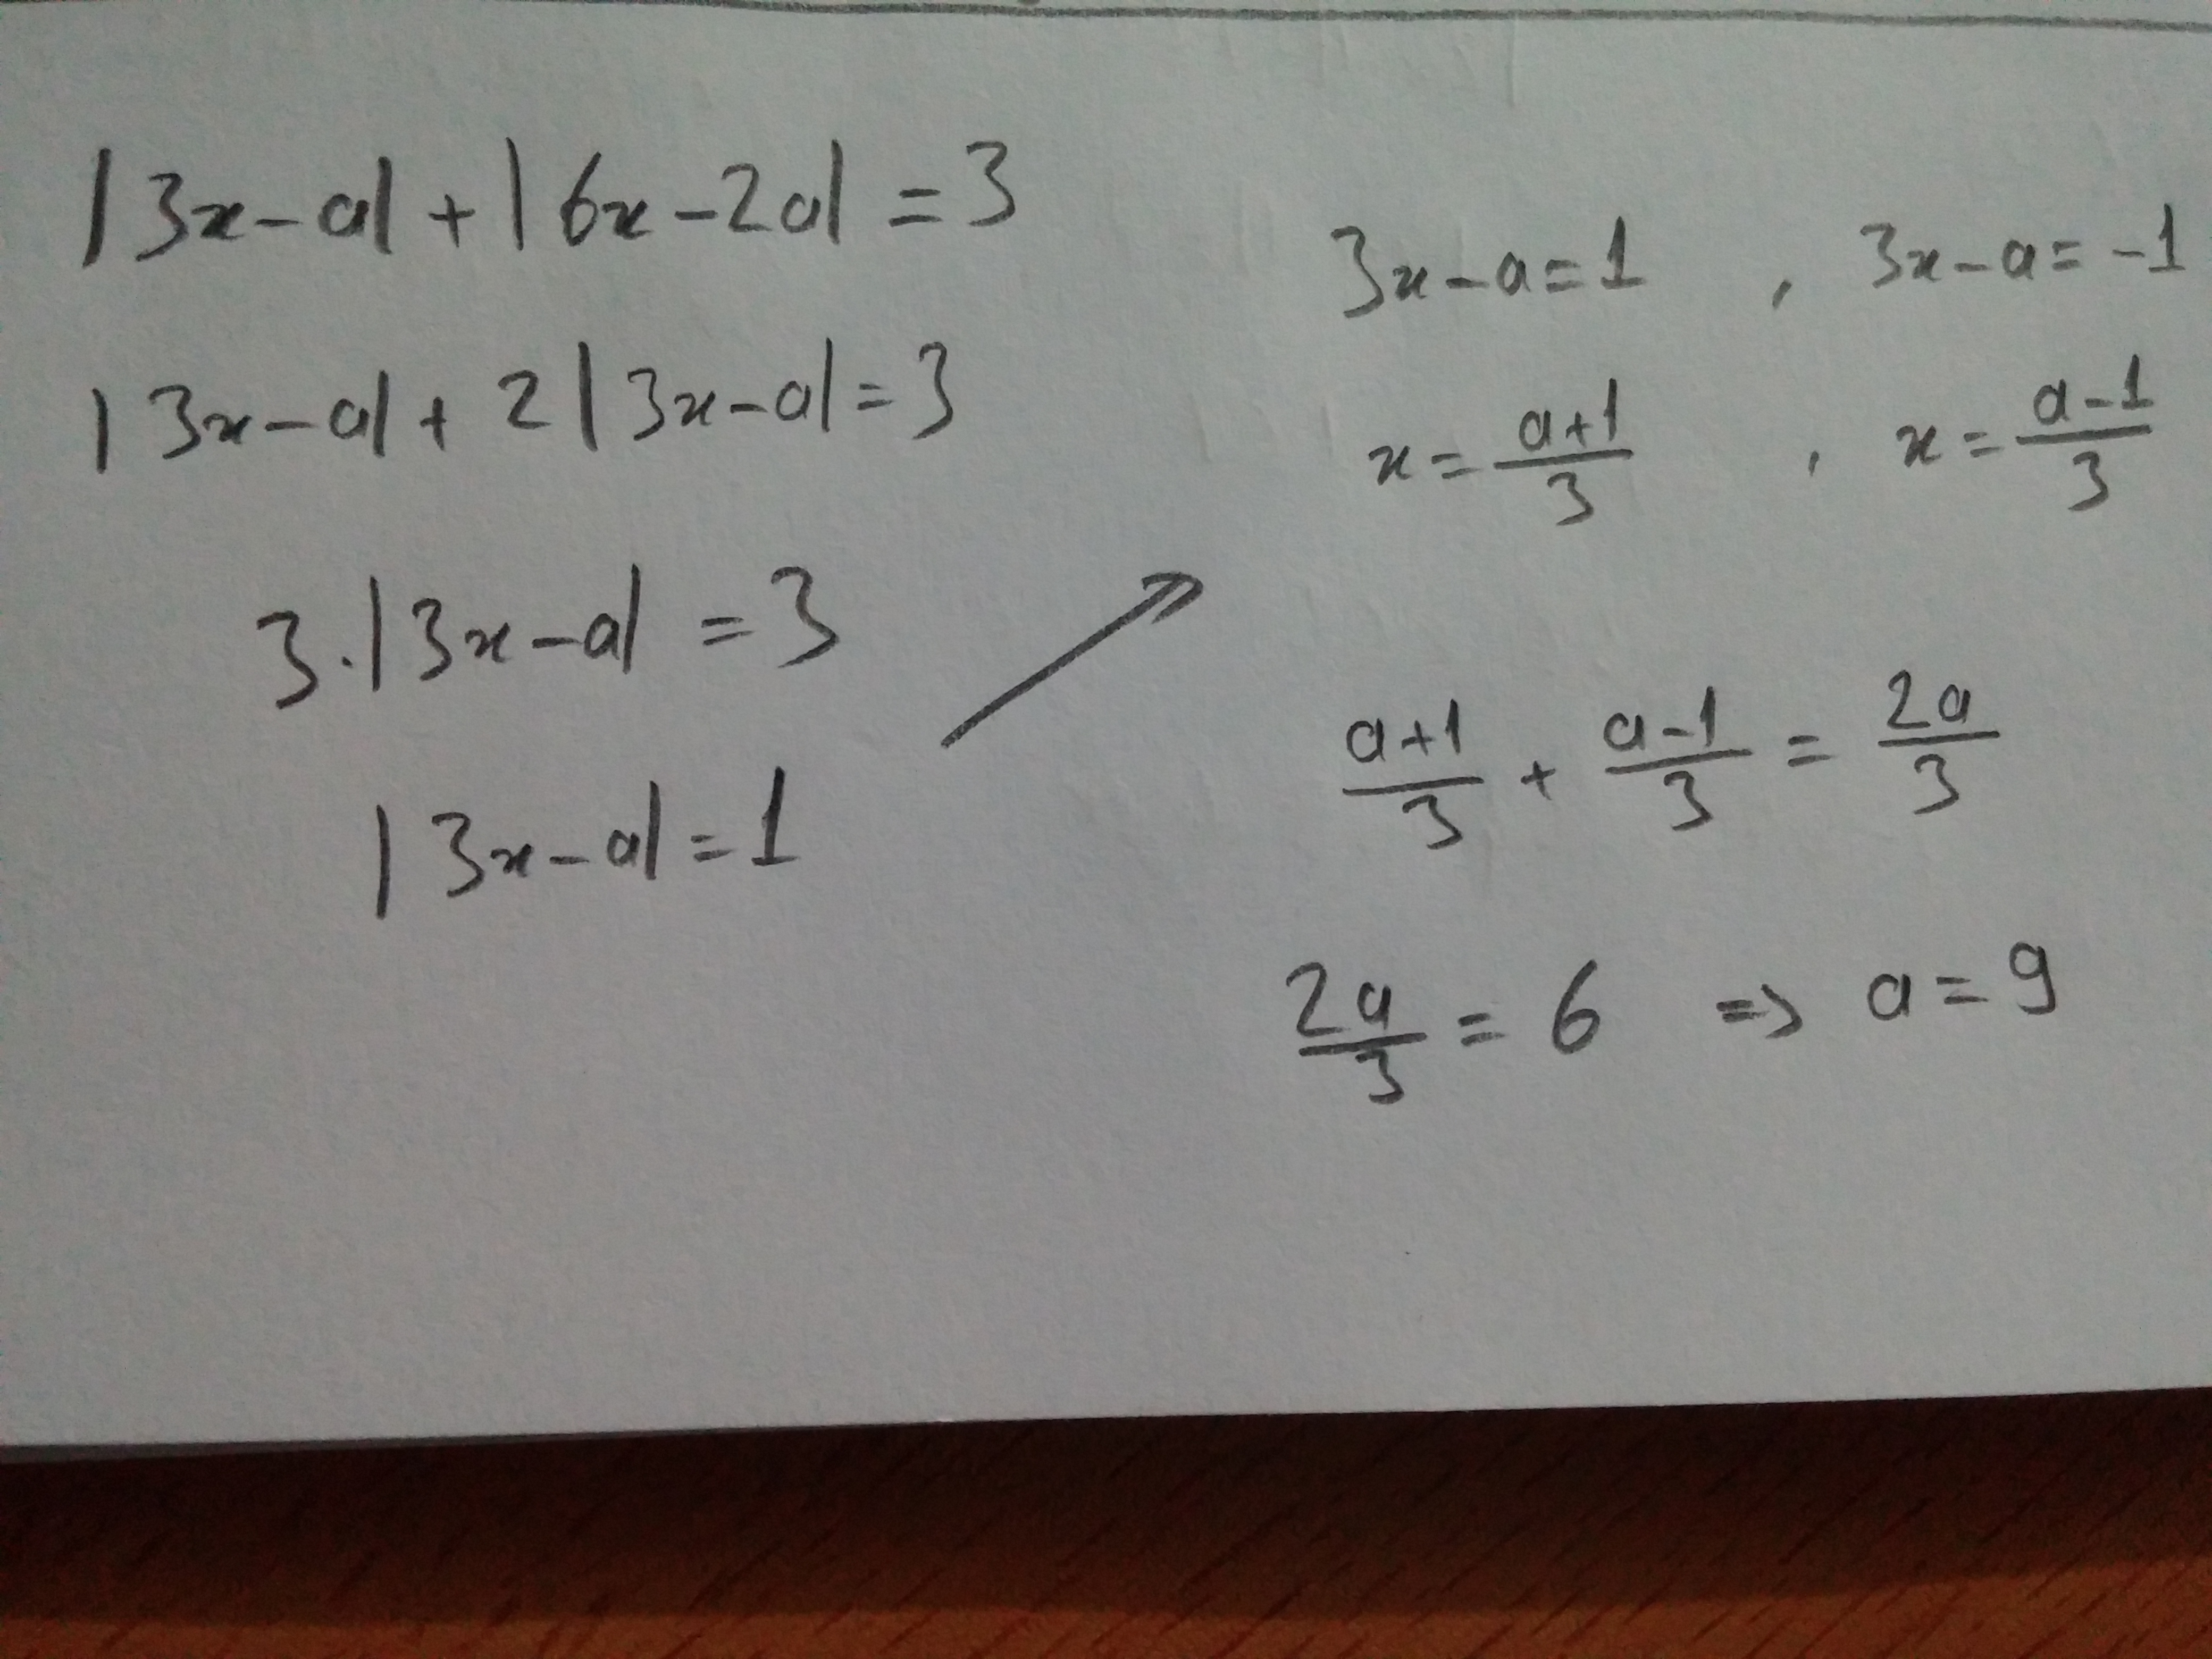 |3x-a|+|6x-2a|=3
|3x-a|+2|3x-a|=3
3.|3x-a|=3
|3x-a|=1
3x-a=1 , 3x-a=-1
x=\frac{a+1}{3} , x=\frac{a-1}{3}
\frac{a+1}{3}+\frac{a-1}{3}=\frac{2a}{3}
\frac{2a}{3}=6 => a=9